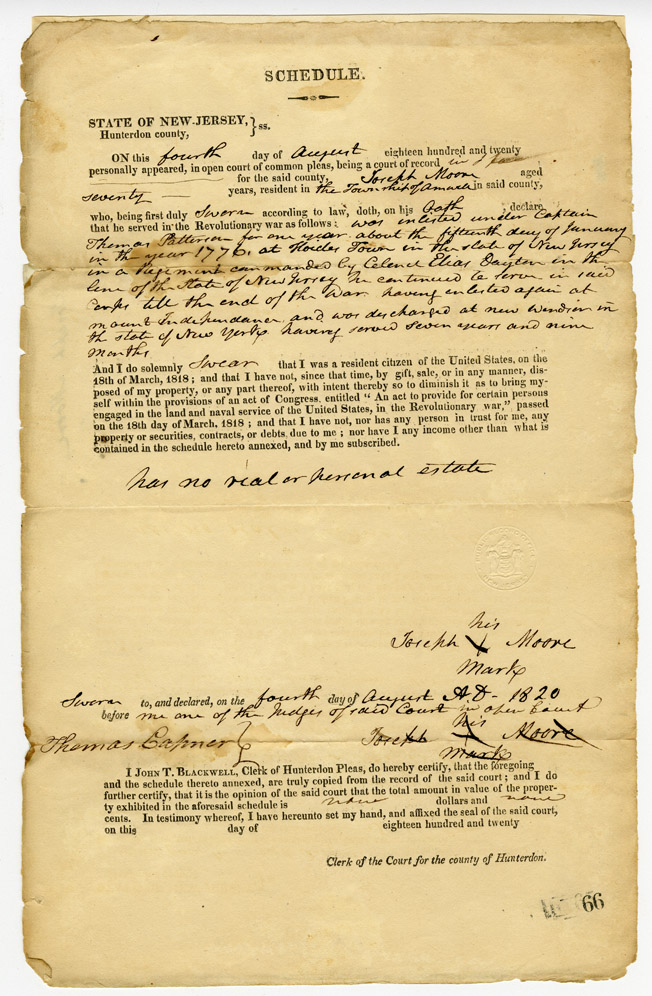 SCHEDULE.
STATE OF NEW-JERSEY, } ss.
Hunterdon county,
ON this fourth day of August eighteen hundred and twenty
personally appeared, in open court of common pleas, being a court of record in &
for the said county, Joseph Moore aged
seventy years, resident in the Township of Amwell in said county,
who, being first duly Sworn according to law, doth, on his Oath declare
that he served in the Revolutionary war as follows: was enlisted under Captain
Thomas Patterson for one year about the fifteenth day of January
in the year 1776, at Town in the state of New Jersey
in a Regiment commanded by Colonel Elias Dayton in the
line of the State of New Jersey he continued to serve in said
Corps till the end of the War having enlisted again at
mount Independance and was discharged at new Windsor in
the state of New York having served seven years and nine
months
And I do solemnly Swear that I was a resident citizen of the United States, on the
18th of March, 1818; and that I have not, since that time, by gift, sale, or in any manner, dis-
posed of my property, or any part thereof, with intent thereby so to diminish it as to bring my-
self within the provisions of an act of Congress, entitled "An act to provide for certain persons
engaged in the land and naval service of the United States, in the Revolutionary war," passed
on the 18th day of March, 1818; and that I have not, nor has any person in trust for me, any
property or securities, contracts, or debts due to me; nor have I any income other than what is
contained in the schedule hereto annexed, and by me subscribed.
has no real or personal estate
his
Joseph X Moore
Mark
Sworn to, and declared, on the fourth day of August AD- 1820
before me one of the Judges of said Court in open Court
his
Thomas Capner } Joseph X Moore
Mark
I JOHN T. BLACKWELL, Clerk of Hunterdon Pleas, do hereby certify, that the foregoing
and the schedule thereto annexed, are truly copied from the record of the said court; and I do
further certify, that it is the opinion of the said court that the total amount in value of the proper-
ty exhibited in the aforesaid schedule is none dollars and none
cents. In testimony whereof, I have hereunto set my hand, and affixed the seal of the said court,
on this day of eighteen hundred and twenty
Clerk of the Court for the county of Hunterdon.
66